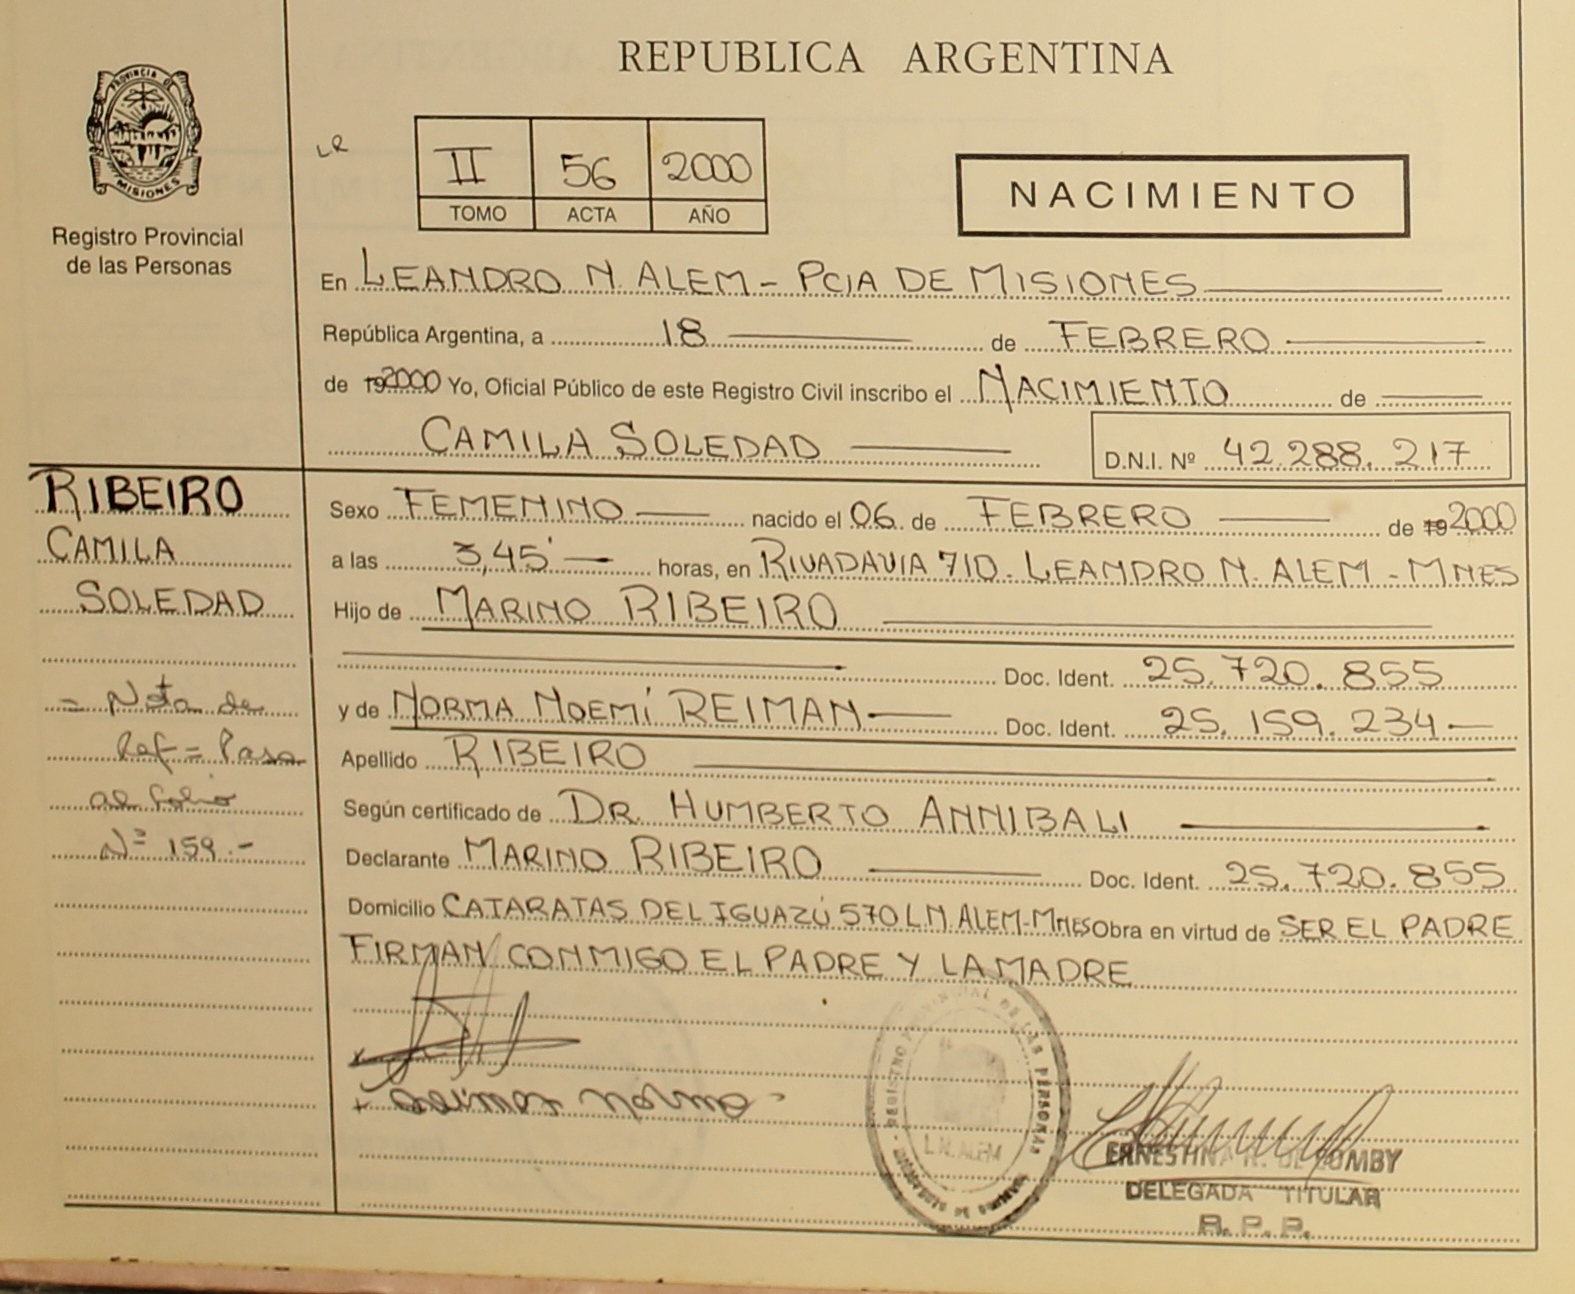 REPUBLICA ARGENTINA
PROVINCIA DE
MISIONES
Registro Provincial
de las Personas
LR
II 56 2000
TOMO ACTA AÑO
NACIMIENTO
En LEANDRO N. ALEM - PCIA DE MISIONES
República Argentina, a 18 de FEBRERO
de 192000 Yo, Oficial Público de este Registro Civil inscribo el NACIMIENTO de
CAMILA SOLEDAD D.N.I. Nº 42.288.217
RIBEIRO
CAMILA
SOLEDAD
= Nota de
Ref = Pasa
al folio
Nº 159.-
Sexo FEMENINO nacido el 06 de FEBRERO de 192000
a las 3,45' horas, en RIVADAVIA 710. LEANDRO N. ALEM - MNES
Hijo de MARINO RIBEIRO
Doc. Ident. 25.720.855
y de NORMA NOEMÍ REIMAN Doc. Ident. 25.159.234
Apellido RIBEIRO
Según certificado de DR. HUMBERTO ANNIBALI
Declarante MARINO RIBEIRO Doc. Ident. 25.720.855
Domicilio CATARATAS DEL IGUAZÚ 570 L.N. ALEM-MNES Obra en virtud de SER EL PADRE
FIRMAN CONMIGO EL PADRE Y LA MADRE
Reiman Norma
REGISTRO PROVINCIAL DE LAS PERSONAS
L.N. ALEM
ERNESTINA
DELEGADA TITULAR
R.P.P.